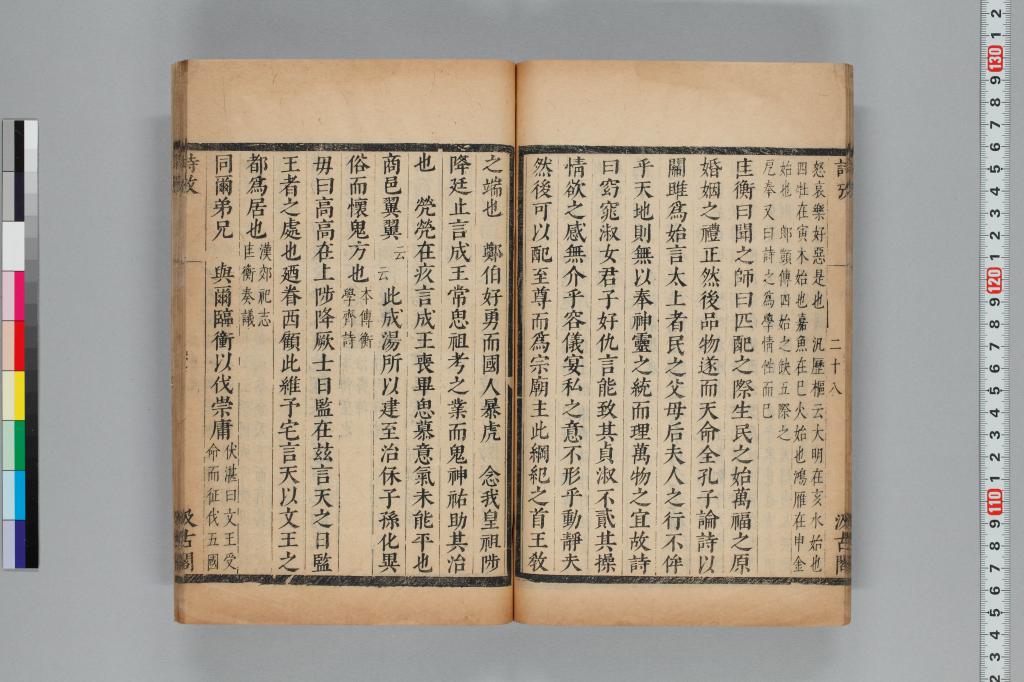 詩攷 二十八 汲古閣
怒哀樂好惡是也 汎歷樞云大明在亥水始也
四牡在寅木始也嘉魚在巳火始也鴻雁在申金
始也 郎顗傳四始之缺五際之
戹奉又曰詩之爲學情性而已
匡衡曰聞之師曰匹配之際生民之始萬福之原
婚姻之禮正然後品物遂而天命全孔子論詩以
關雎爲始言太上者民之父母后夫人之行不侔
乎天地則無以奉神靈之統而理萬物之宜故詩
曰窈窕淑女君子好仇言能致其貞淑不貳其操
情欲之感無介乎容儀宴私之意不形乎動靜夫
然後可以配至尊而爲宗廟主此綱紀之首王敎
之端也 鄭伯好勇而國人暴虎 念我皇祖陟
降廷止言成王常思祖考之業而鬼神祐助其治
也 焭焭在疚言成王喪畢思慕意氣未能平也
商邑翼翼云云 此成湯所以建至治保子孫化異
俗而懷鬼方也本傳衡
學齊詩
毋曰高高在上陟降厥士日監在玆言天之日監
王者之處也廼眷西顧此維予宅言天以文王之
都爲居也漢郊祀志
匡衡奏議
同爾弟兄 與爾臨衝以伐崇庸伏湛曰文王受
命而征伐五國
詩攷
汲古閣